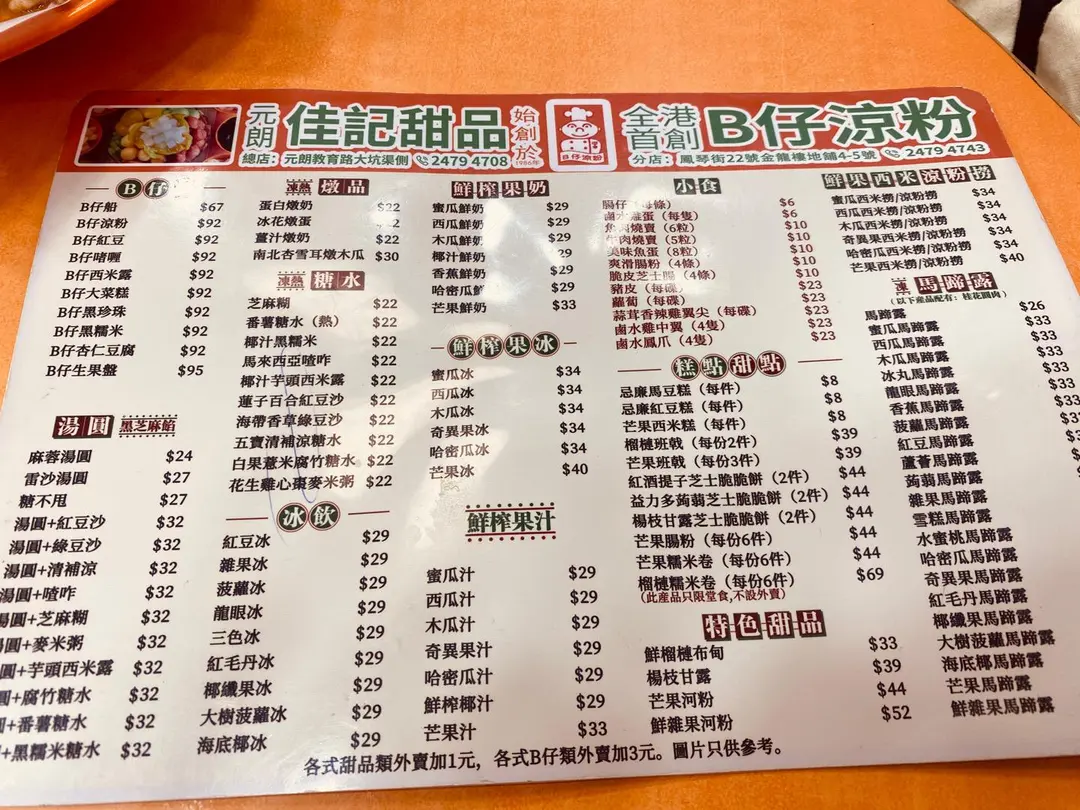 元朗 佳記甜品 始創於 1986年
總店：元朗教育路大坑渠側 2479 4708
B仔涼粉
全港首創 B仔涼粉
分店：鳳琴街22號金龍樓地舖4-5號 2479 4743
B仔
B仔船 $67
B仔涼粉 $92
B仔紅豆 $92
B仔啫喱 $92
B仔西米露 $92
B仔大菜糕 $92
B仔黑珍珠 $92
B仔黑糯米 $92
B仔杏仁豆腐 $92
B仔生果盤 $95
湯圓 黑芝麻餡
麻蓉湯圓 $24
雷沙湯圓 $27
糖不甩 $27
湯圓+紅豆沙 $32
湯圓+綠豆沙 $32
湯圓+清補涼 $32
湯圓+喳咋 $32
湯圓+芝麻糊 $32
圓+麥米粥 $32
圓+芋頭西米露 $32
+腐竹糖水 $32
+番薯糖水 $32
+黑糯米糖水 $32
凍熱 燉品
蛋白燉奶 $22
冰花燉蛋
薑汁燉奶 $22
南北杏雪耳燉木瓜 $30
凍熱 糖水
芝麻糊 $22
番薯糖水（熱） $22
椰汁黑糯米 $22
馬來西亞喳咋 $22
椰汁芋頭西米露 $22
蓮子百合紅豆沙 $22
海帶香草綠豆沙 $22
五寶清補涼糖水 $22
白果薏米腐竹糖水 $22
花生雞心棗麥米粥 $22
冰飲
紅豆冰 $29
雜果冰 $29
菠蘿冰 $29
龍眼冰 $29
三色冰 $29
紅毛丹冰 $29
椰纖果冰 $29
大樹菠蘿冰 $29
海底椰冰 $29
鮮榨果奶
蜜瓜鮮奶 $29
西瓜鮮奶 $29
木瓜鮮奶 $29
椰汁鮮奶 $29
香蕉鮮奶 $29
哈密瓜鮮奶 $29
芒果鮮奶 $33
鮮榨果冰
蜜瓜冰 $34
西瓜冰 $34
木瓜冰 $34
奇異果冰 $34
哈密瓜冰 $34
芒果冰 $40
鮮榨果汁
蜜瓜汁 $29
西瓜汁 $29
木瓜汁 $29
奇異果汁 $29
哈密瓜汁 $29
鮮榨椰汁 $29
芒果汁 $33
小食
腸仔（每條） $6
鹵水雞蛋（每隻） $6
魚肉燒賣（6粒） $10
牛肉燒賣（5粒） $10
美味魚蛋（8粒） $10
爽滑腸粉（4條） $10
脆皮芝士腸（4條） $23
豬皮（每碟） $23
蘿蔔（每碟） $23
蒜茸香辣雞翼尖（每碟） $23
鹵水雞中翼（4隻） $23
鹵水鳳爪（4隻） $23
糕點甜點
忌廉馬豆糕（每件） $8
忌廉紅豆糕（每件） $8
芒果西米糕（每件） $8
榴槤班戟（每份2件） $39
芒果班戟（每份3件） $39
紅酒提子芝士脆脆餅（2件） $44
益力多蒟蒻芝士脆脆餅（2件） $44
楊枝甘露芝士脆脆餅（2件） $44
芒果腸粉（每份6件） $44
芒果糯米卷（每份6件） $44
榴槤糯米卷（每份6件） $69
（此産品只限堂食,不設外賣）
特色甜品
鮮榴槤布甸 $33
楊枝甘露 $39
芒果河粉 $44
鮮雜果河粉 $52
鮮果西米涼粉撈
蜜瓜西米撈/涼粉撈 $34
西瓜西米撈/涼粉撈 $34
木瓜西米撈/涼粉撈 $34
奇異果西米撈/涼粉撈 $34
哈密瓜西米撈/涼粉撈 $34
芒果西米撈/涼粉撈 $40
凍 馬蹄露
（以下産品配有：桂花圓肉）
馬蹄露 $26
蜜瓜馬蹄露 $33
西瓜馬蹄露 $33
木瓜馬蹄露 $33
冰丸馬蹄露 $33
龍眼馬蹄露 $33
香蕉馬蹄露
菠蘿馬蹄露
紅豆馬蹄露
蘆薈馬蹄露
蒟蒻馬蹄露
雜果馬蹄露
雪糕馬蹄露
水蜜桃馬蹄露
哈密瓜馬蹄露
奇異果馬蹄露
紅毛丹馬蹄露
椰纖果馬蹄露
大樹菠蘿馬蹄露
海底椰馬蹄露
芒果馬蹄露
鮮雜果馬蹄露
各式甜品類外賣加1元，各式B仔類外賣加3元。圖片只供參考。